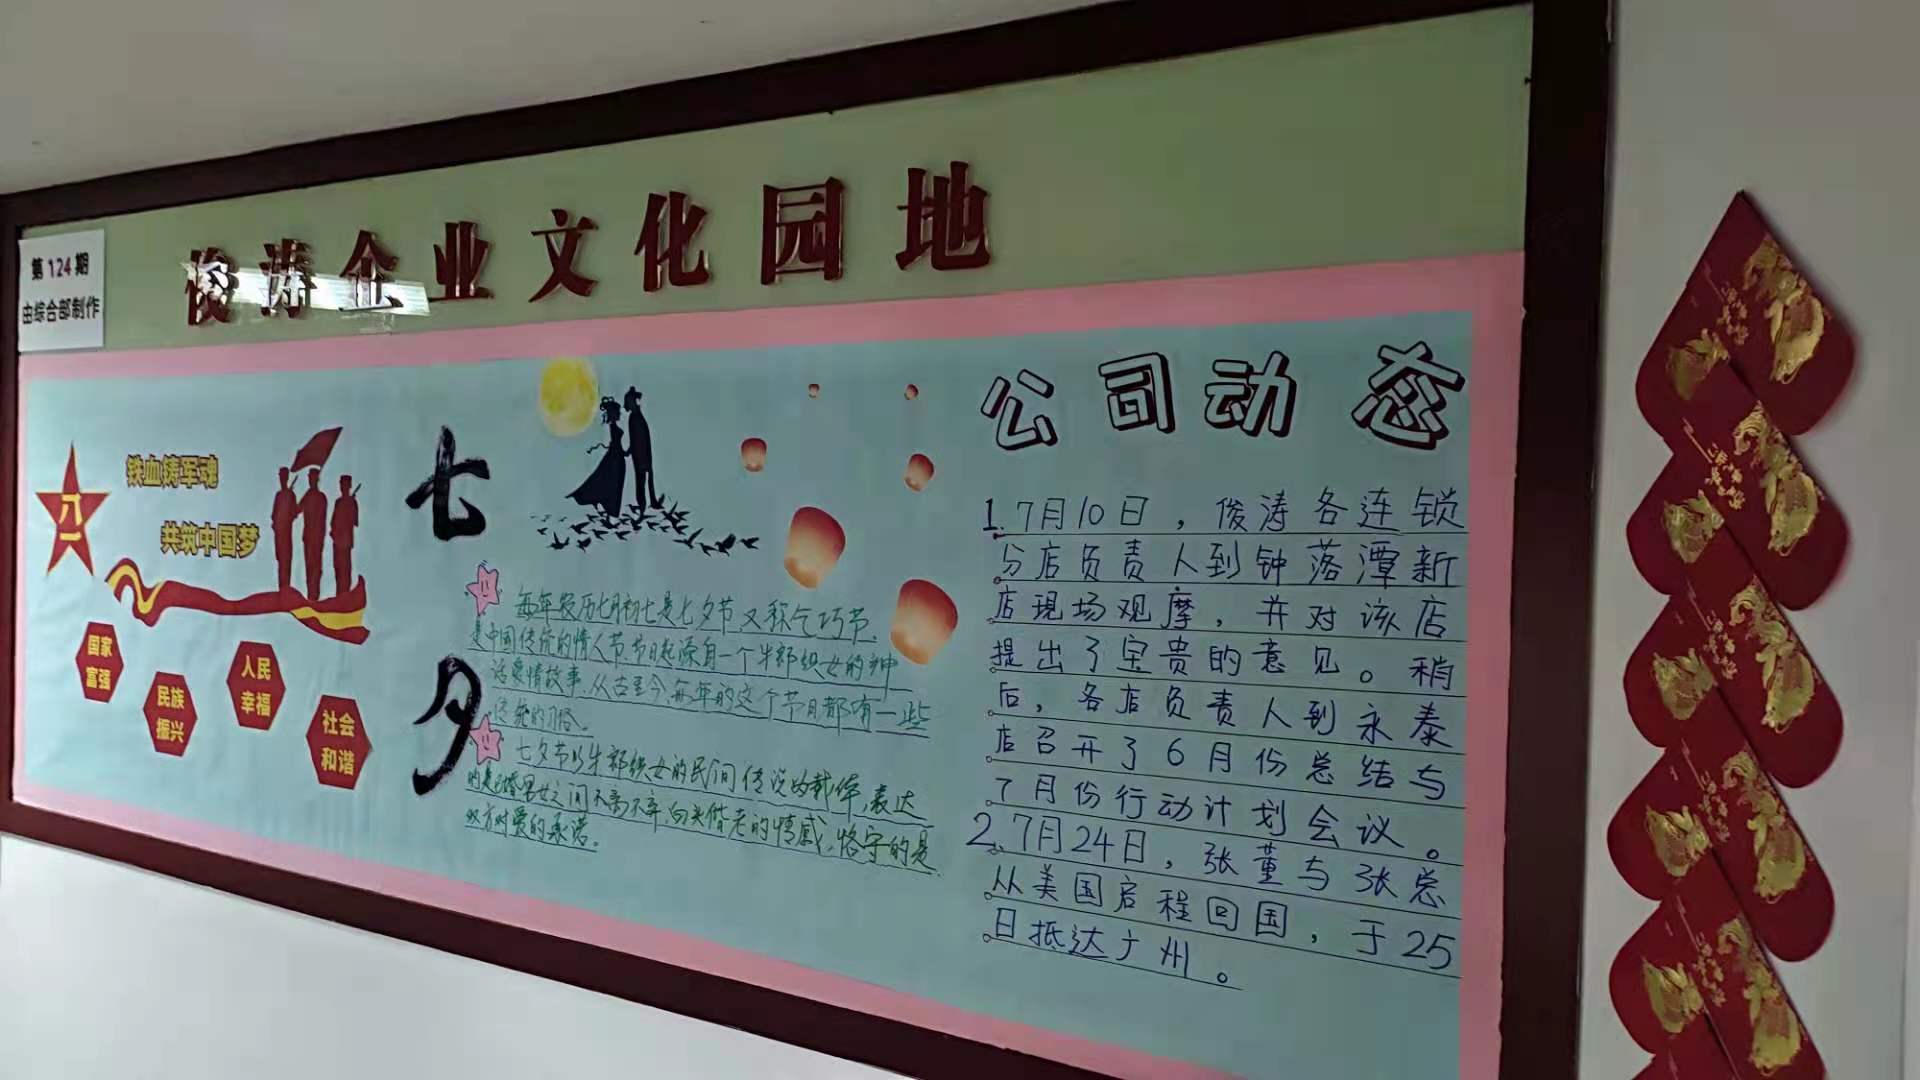 第124期
由综合部制作
俊涛企业文化园地
八一
铁血铸军魂
共筑中国梦
国家
富强
民族
振兴
人民
幸福
社会
和谐
七夕
每年农历七月初七是七夕节,又称乞巧节,
是中国传统的情人节,节日起源自一个牛郎织女的神
话爱情故事,从古至今,每年的这个节日都有一些
传统的习俗。
七夕节以牛郎织女的民间传说为载体,表达
的是已婚男女之间不离不弃,白头偕老的情感,恪守的是
双方对爱的承诺。
公司动态
1.7月10日,俊涛各连锁
分店负责人到钟落潭新
店现场观摩,并对该店
提出了宝贵的意见。稍
后,各店负责人到永泰
店召开了6月份总结与
7月份行动计划会议。
2.7月24日,张董与张总
从美国启程回国,于25
日抵达广州。